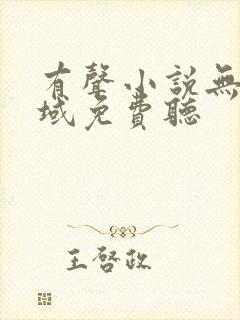 有聲小說無
域免費聽
王啓政